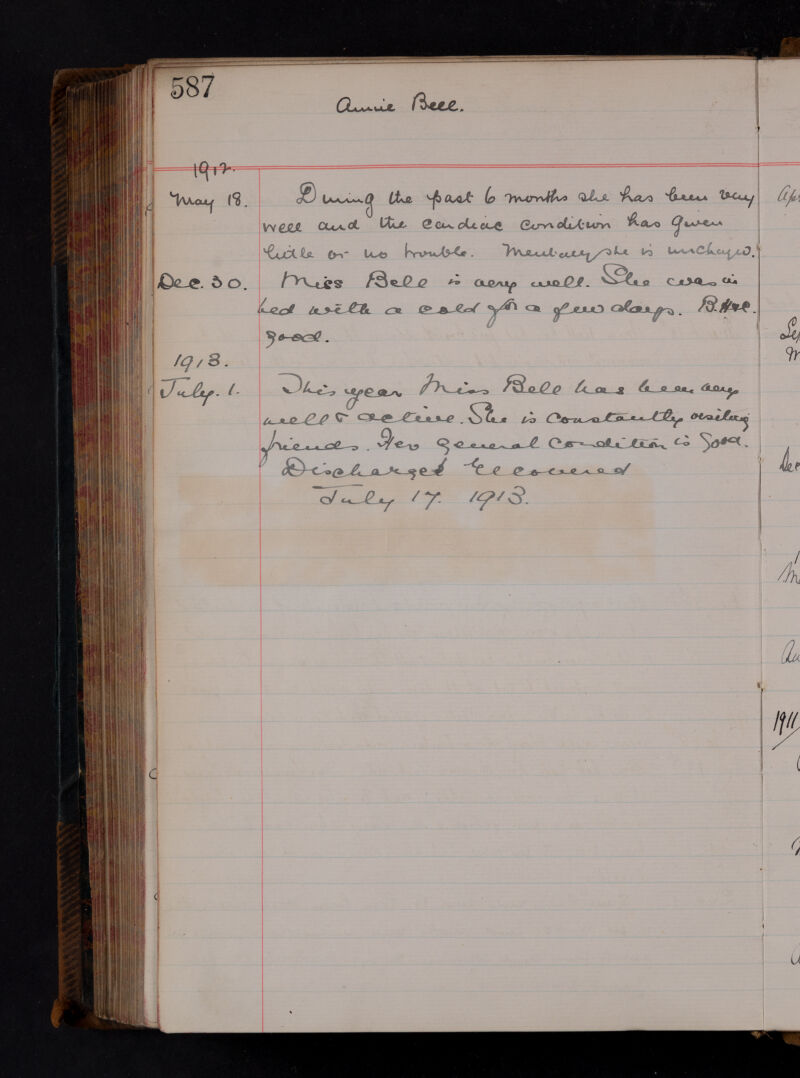 587
Annie Bell.
1912.
May 18. During the past 6 months she has been very
well and the cardiac condition has given
little or no trouble. Mentally she is unchanged.
Dec. 30. Miss Bell is very well. She was in
bed with a cold for a few days. B.H.
good.
1913.
July. 1. This year Miss Bell has been very
well & active. She is constantly visiting
friends. Her general condition is good.
Discharged Recovered
July 17. 1913.
1911